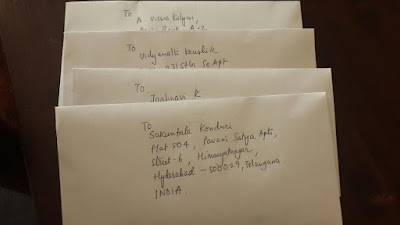 To
A. Viswa Kalyan,
To
Vidyanath Kaushik
Se Apt
To
Jashnavi R
To
Sakuntala Konduri
Flat 504, Pavani Satya Apts,
Street-6, Himayatnagar,
Hyderabad - 500029, Telangana.
INDIA.